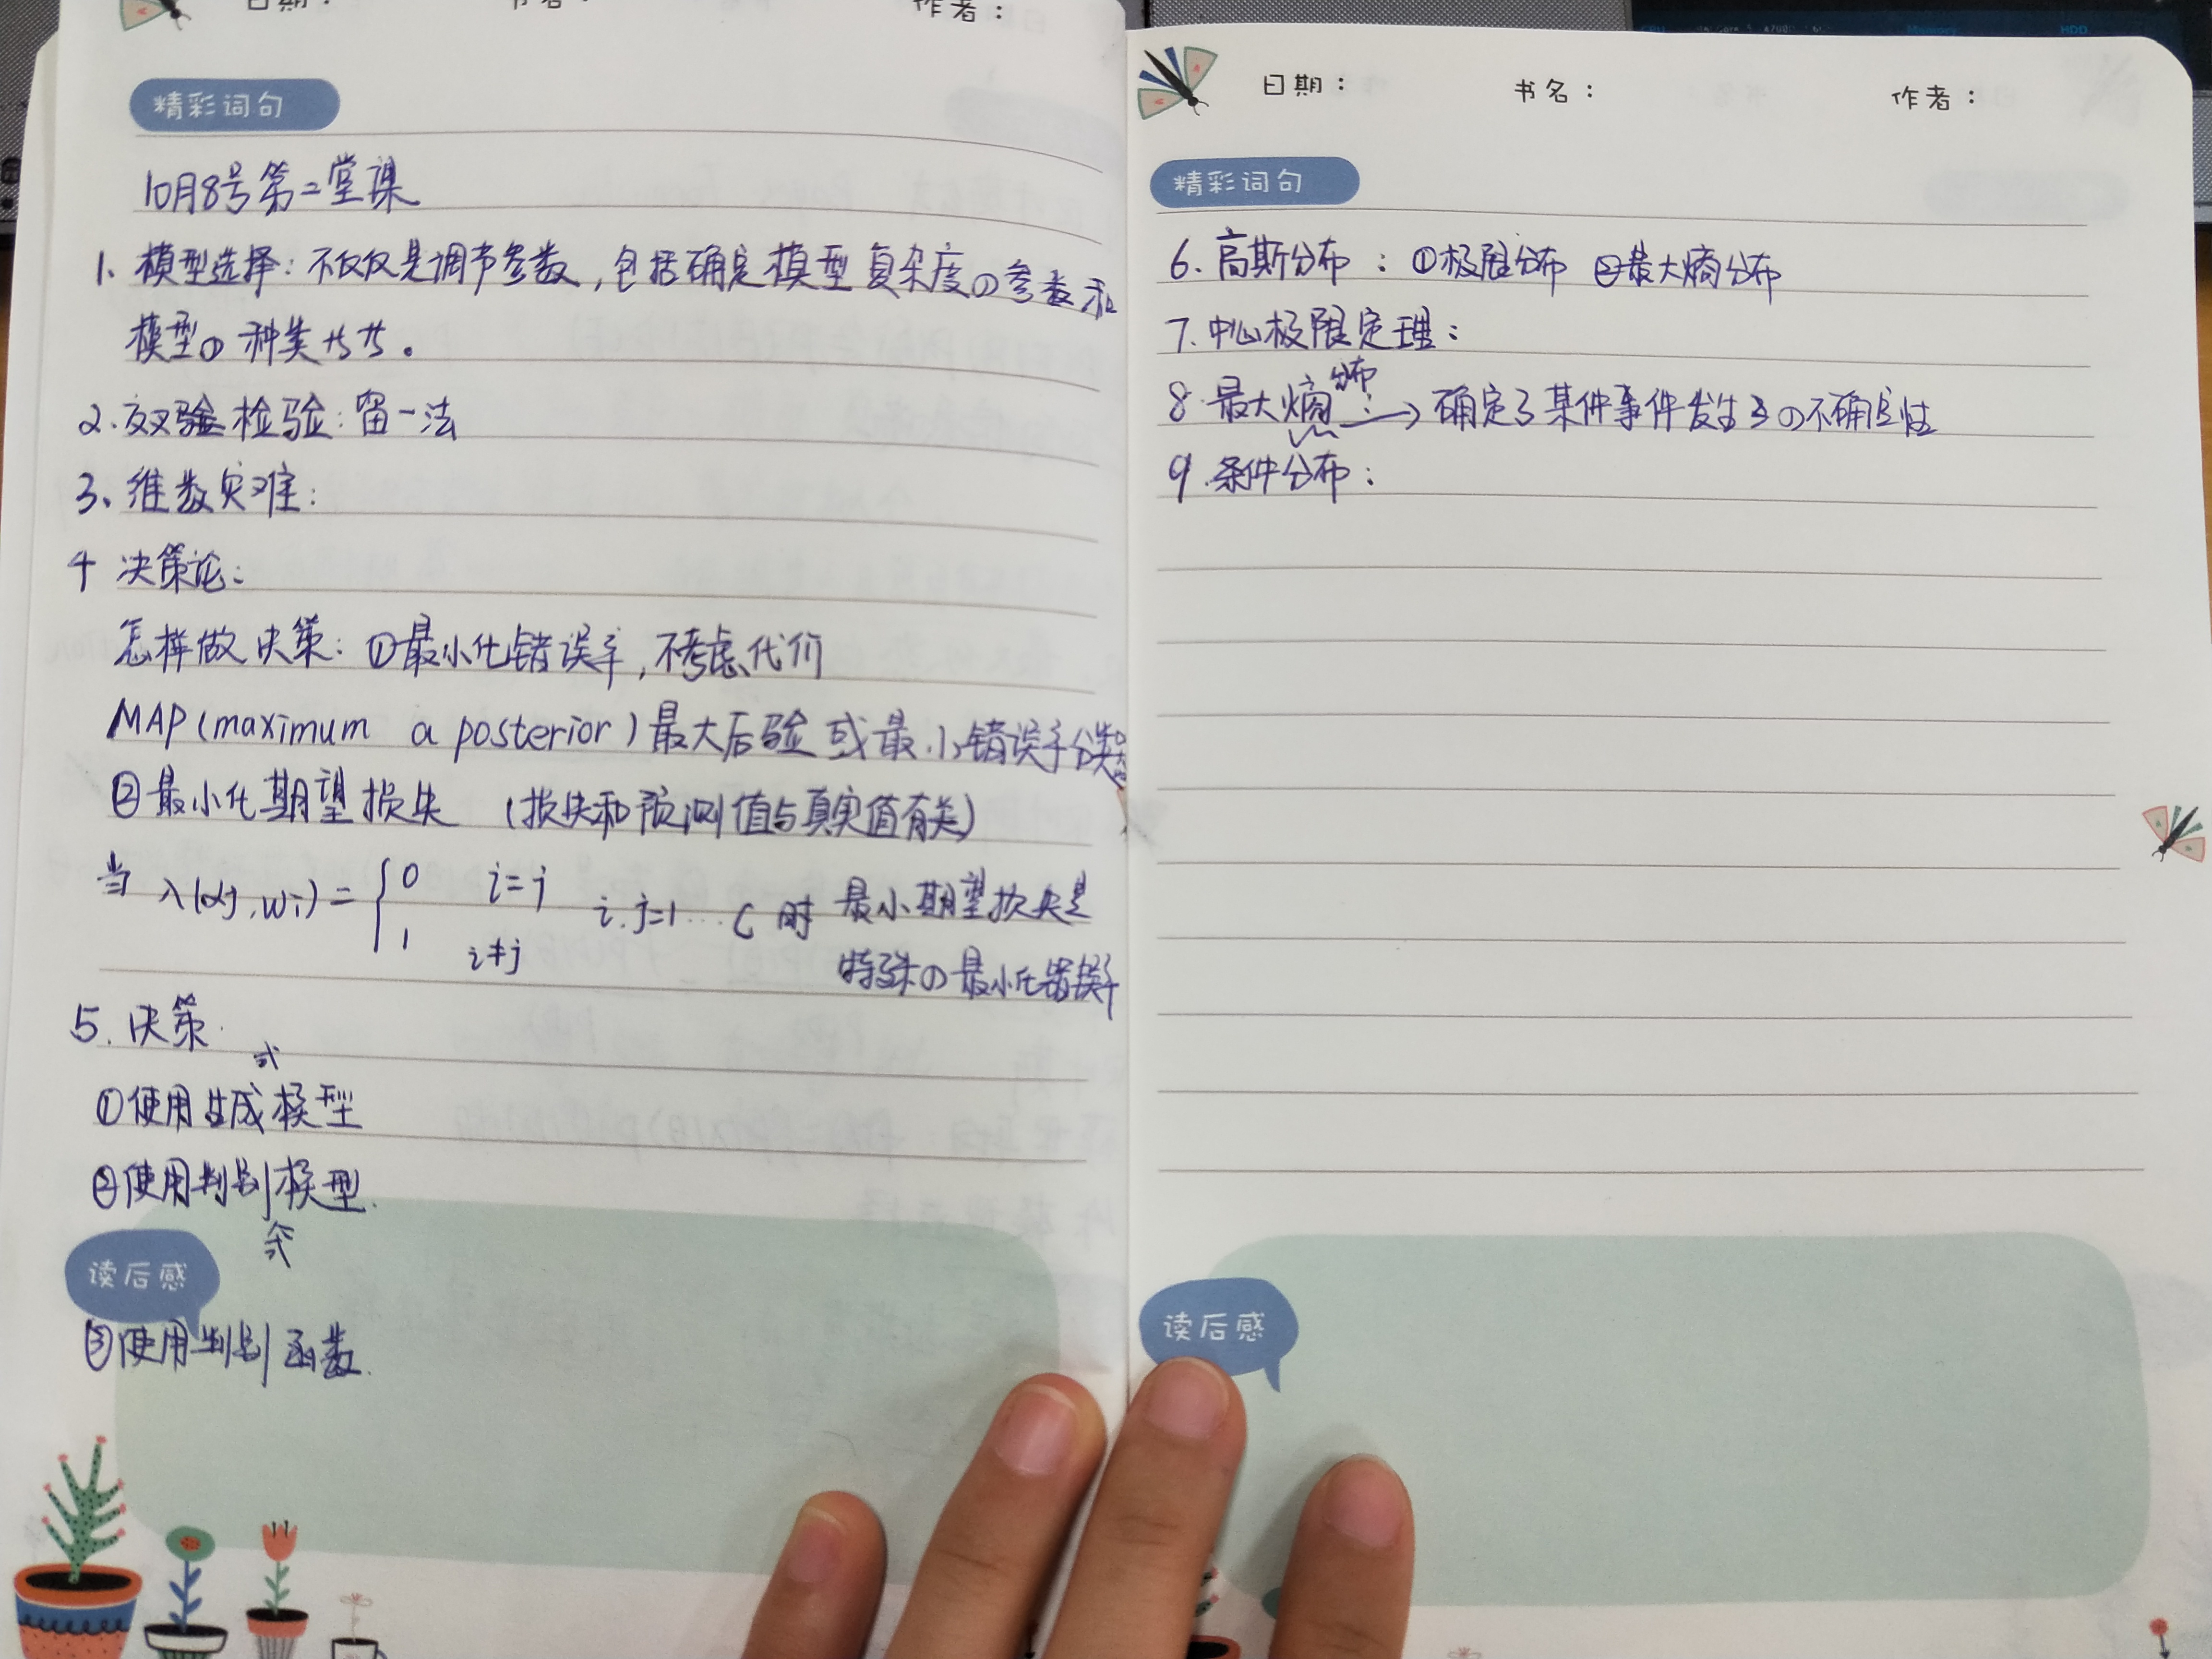 日期： 书名： 作者：
精彩词句
10月8号第二堂课
1、模型选择：不仅仅是调节参数，包括确定模型复杂度の参数和
模型の种类等等。
2.交叉验检验：留一法
3、维数灾难：
4 决策论：
怎样做决策：①最小化错误率，不考虑代价
MAP(maximum a posterior)最大后验或最小错误率分类器
②最小化期望损失 (损失和预测值与真实值有关)
当 λ(αj,wi)={0 i=j
1 i≠j
i.j=1...C 时 最小期望损失是
特殊の最小化错误率
5.决策
①使用生成式模型
②使用判别式模型.
读后感
③使用判别函数.
日期： 书名： 作者：
精彩词句
6.高斯分布：①极限分布 ②最大熵分布
7.中心极限定理：
8.最大熵分布：→确定了某件事件发生了の不确定性
9.条件分布：
读后感